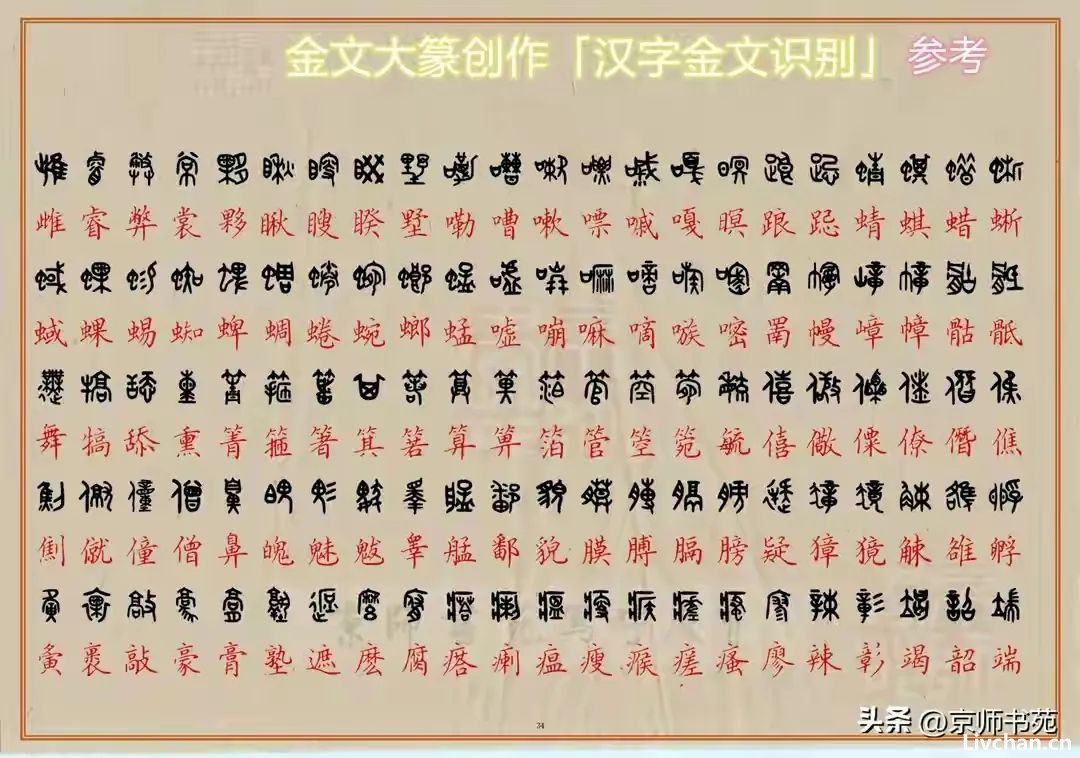 金文大篆创作「汉字金文识别」 参考
雌睿弊裳夥瞅瞍睽墅嘞嘈嗽嘌嘁嘎暝踉跽蜻蜞蜡蜥
蜮蜾蜴蜘蜱蜩蜷蜿螂蜢嘘嘣嘛嘀嗾嘧罱幔嶂幛骷骶
舞犒舔熏箐箍箸箕箬算箅箔管箜篼毓僖儆僳僚僭僬
劁僦僮僧鼻魄魅魃睾艋鄱貌膜膊膈膀疑獐獍觫雒孵
夤裹敲豪膏塾遮麽腐瘩瘌瘟瘦瘊瘥瘙廖辣彰竭韶端
34
头条 @京师书苑
Livchan.cn